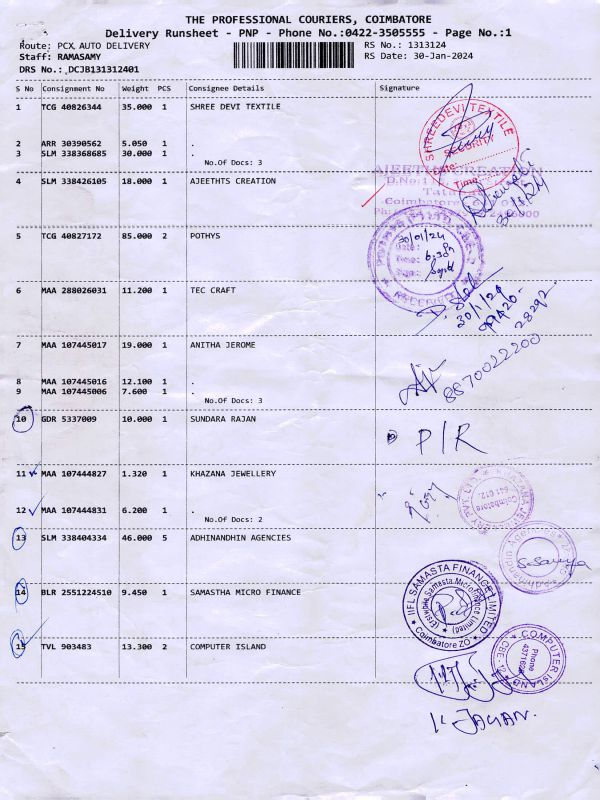 THE PROFESSIONAL COURIERS, COIMBATORE
Delivery Runsheet - PNP - Phone No.:0422-3505555 - Page No.:1
Route: PCX AUTO DELIVERY RS No.: 1313124
Staff: RAMASAMY RS Date: 30-Jan-2024
DRS No.: DCJB131312401
S No Consignment No Weight PCS Consignee Details Signature
1 TCG 40826344 35.000 1 SHREE DEVI TEXTILE
SHREEDEVI TEXTILE
SECURITY
Date
Time:
2 ARR 30390562 5.050 1 .
3 SLM 338368685 30.000 1 .
No.Of Docs: 3
4 SLM 338426105 18.000 1 AJEETHTS CREATION
Coimbatore
5 TCG 40827172 85.000 2 POTHYS
30/01/24
6:30Pm
RECEIVED
6 MAA 288026031 11.200 1 TEC CRAFT
30/1/24
28292
7 MAA 107445017 19.000 1 ANITHA JEROME
8870022200
8 MAA 107445016 12.100 1 .
9 MAA 107445006 7.600 1 .
No.Of Docs: 3
10 GDR 5337009 10.000 1 SUNDARA RAJAN
P/R
11 MAA 107444827 1.320 1 KHAZANA JEWELLERY
Coimbatore
641 012.
12 MAA 107444831 6.200 1 .
No.Of Docs: 2
13 SLM 338404334 46.000 5 ADHINANDHIN AGENCIES
14 BLR 2551224510 9.450 1 SAMASTHA MICRO FINANCE
IIFL SAMASTA FINANCE LIMITED
Coimbatore ZO
15 TVL 903483 13.300 2 COMPUTER ISLAND
COMPUTER ISLAND
Phone
CBE-12
K JAYAN.